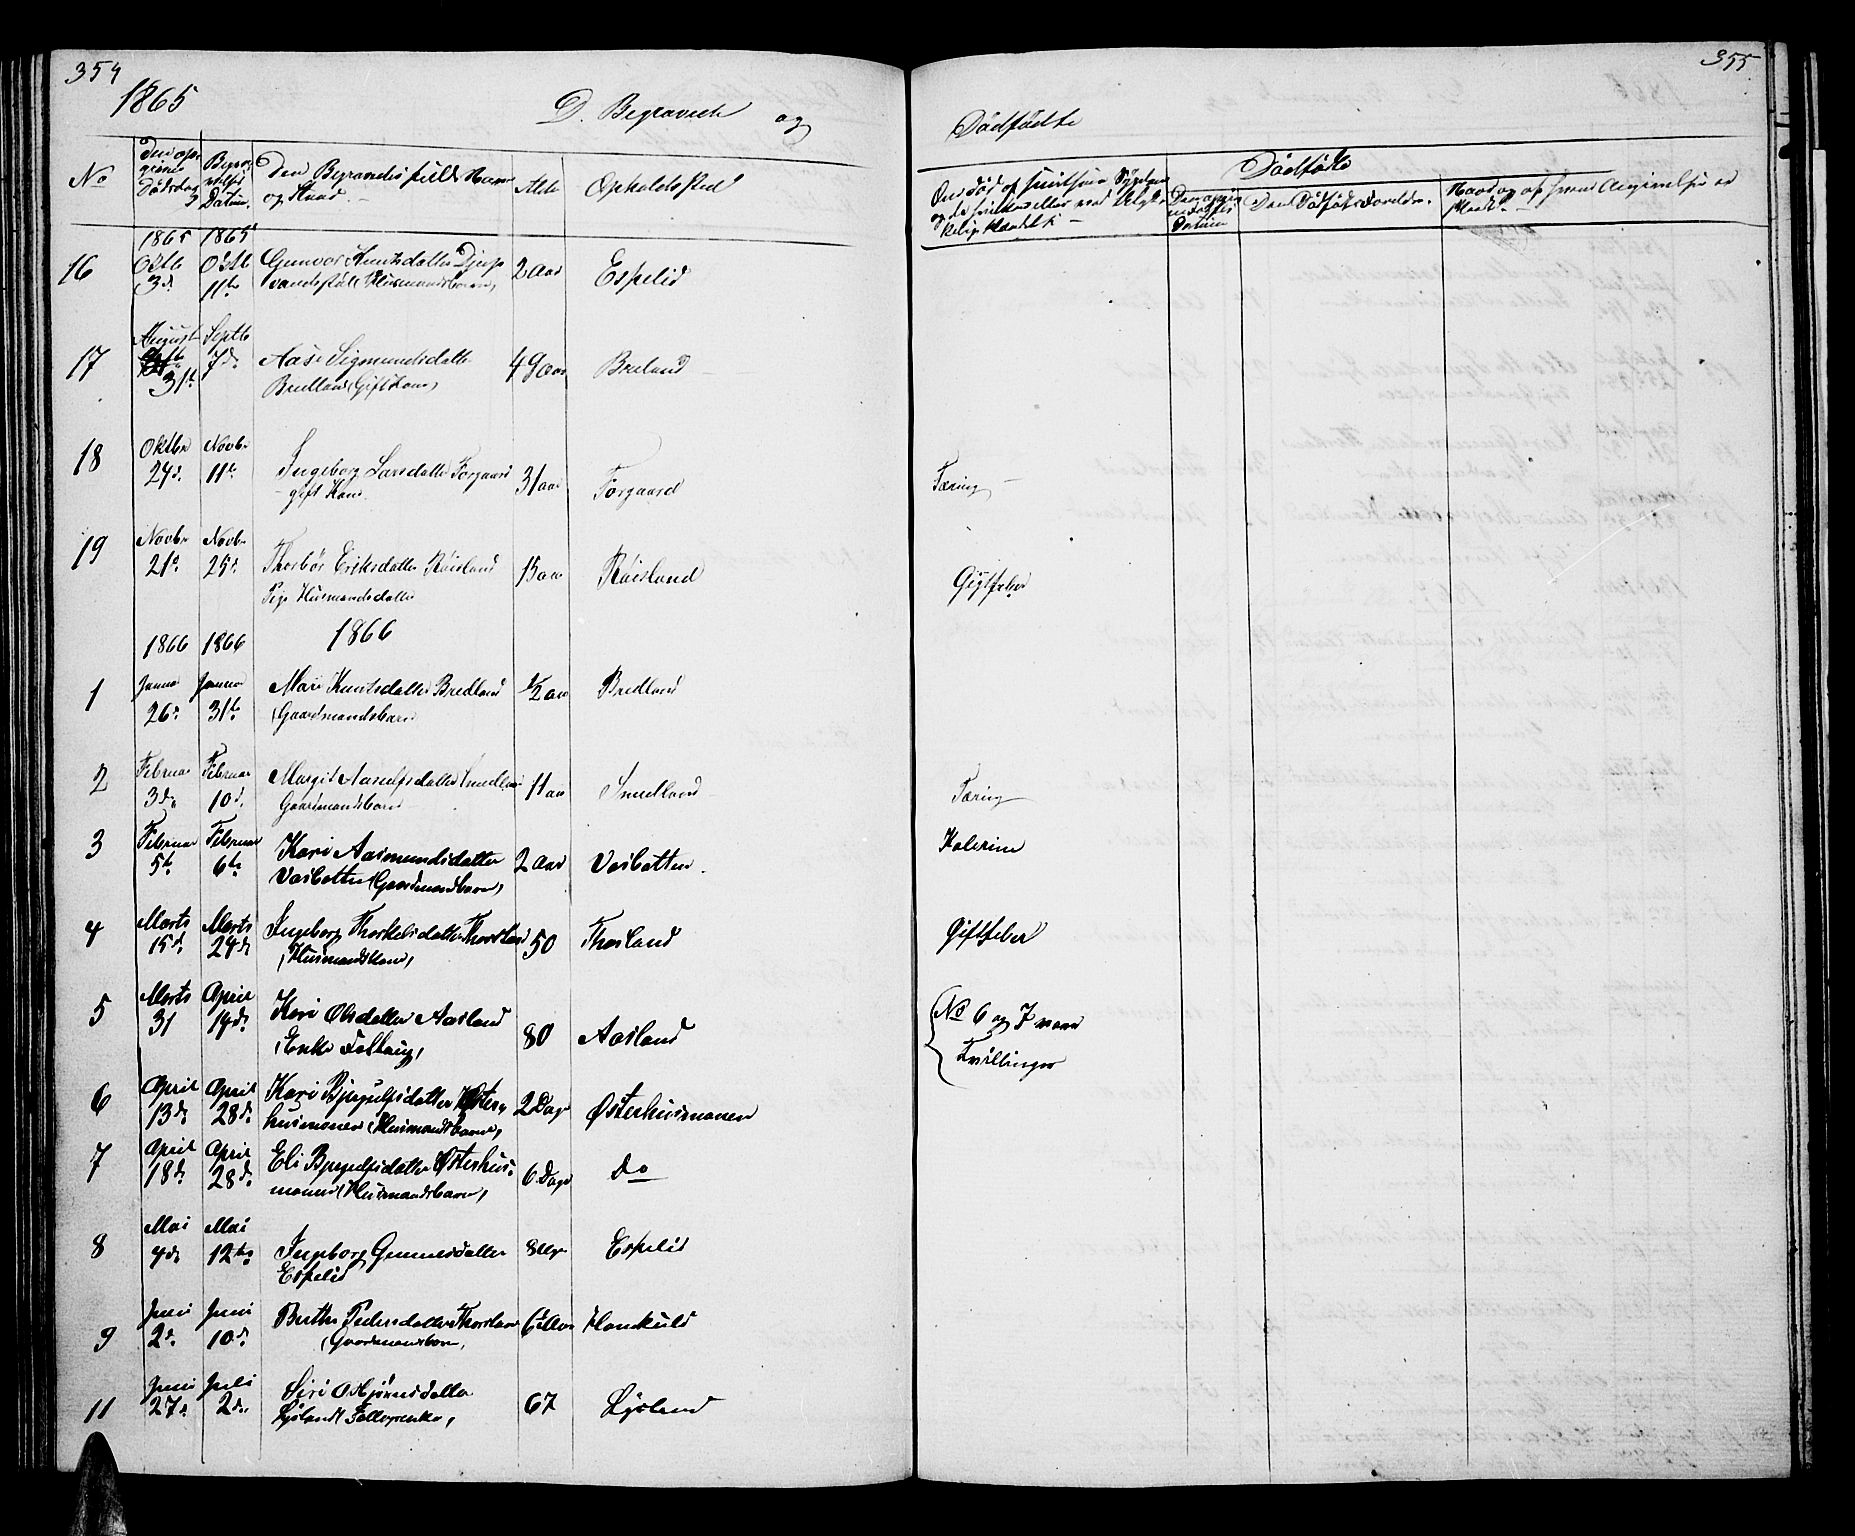 354
1865
D. Begravede og
No
Den opgivne Dødsdag
Begravelses Datum.
Den Begravedes fulde Navn og Stand.
Alder
Opholdssted
16
1865 Octb 3d.
1865 Octb 11te
Gunvor Knutsdatter Djupvandstøl (Husmandsbarn)
2 Aar
Espelid
17
August 31te
Septb 7de
Aase Sigmundsdatter Bredland (Gift Kone)
49 aar
Breland
18
Oktbr 24d.
Novbr 11te
Ingeborg Larsdatter Forgaard
gift Kone
31 aar
Forgaard
19
Novbr 21d.
Novbr 25d.
Thorbør Eriksdatter Røisland
Pige Husmandsdatter
15 aar
Røisland
1866
1866
1866
1
Januar 26d.
Januar 31te
Mari Knutsdatter Bredland
(Gaardmandsbarn
1/2 aar
Bredland
2
Februar 3d.
Februar 10d.
Margit Aanulfsdatter Smedland
Gaardmandsbarn
11 aar
Smedland
3
Februar 5te
Februar 6te
Kari Aasmundsdatter
Vasbotten (Gaardmandbarn)
2 Aar
Vasbotten.
4
Marts 15d.
Marts 24de
Ingeborg Thorkelsdatter Thorsland
(Husmandskone)
50
Thorsland
5
Marts 31
April 14de
Kari Olsdatter Aasland
(Enke Fattig)
80
Aasland
6
April 13de
April 28de
Kari Bjugulfsdatter Østerhusmonen (Husmandsbarn)
2 Dage
Østerhusmonen
7
April 18de
April 28de
Eli Bjugulfsdatter Østerhusmonen (Husmandsbarn)
6 Dage
do
8
Mai 4de
Mai 12te
Ingeborg Gunnersdatter
Espelid
8 Uger
Espelid
9
Juni 2d.
Juni 10d.
Berthe Pedersdatter Thorsland
(Gaardmandsbarn)
6 Aar
Hankuld
11
Juni 27d.
Juli 2d.
Siri Asbjørnsdatter
Ljosland (
67
Ljosland
355
Dødfødte
Dødfødte
Den opgivne Fødsels Datum
Den Dødfødtes Forældre.
Hvad og af hvem Angivelse er skeet.
Tæring
Gigtfeber
Tæring
Kolerine
Giftfeber
No 6 og 7 vare
Tvillinger